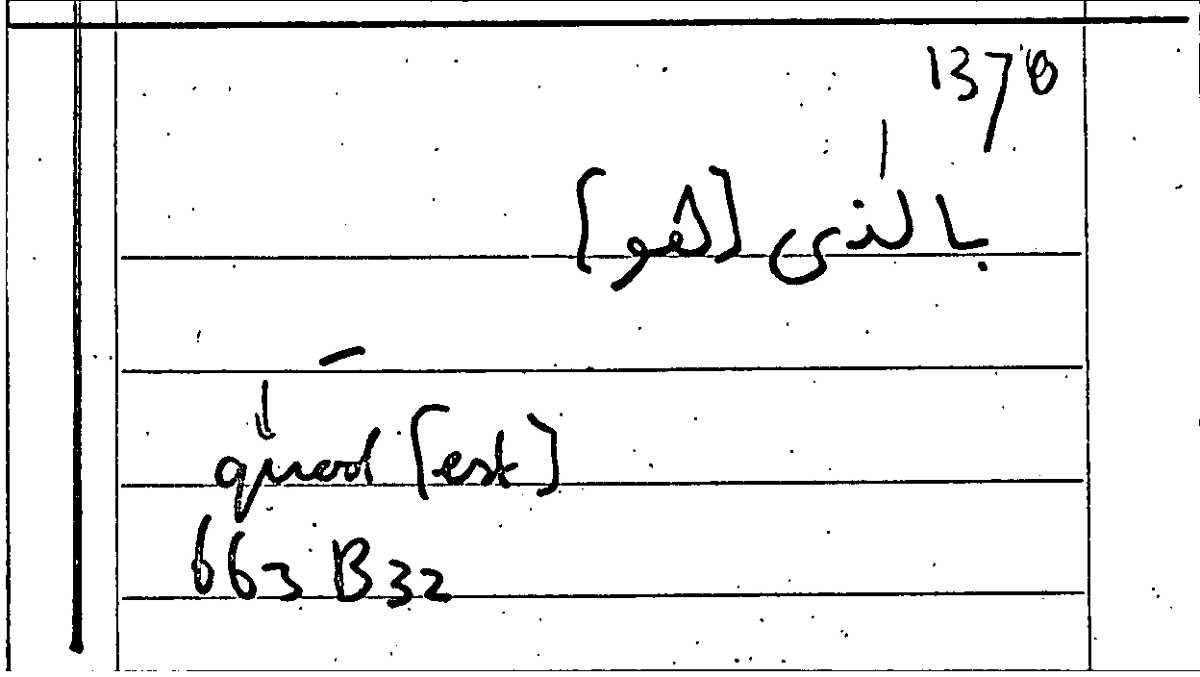 1378
بالذى [هو]
quod [est]
663 B32